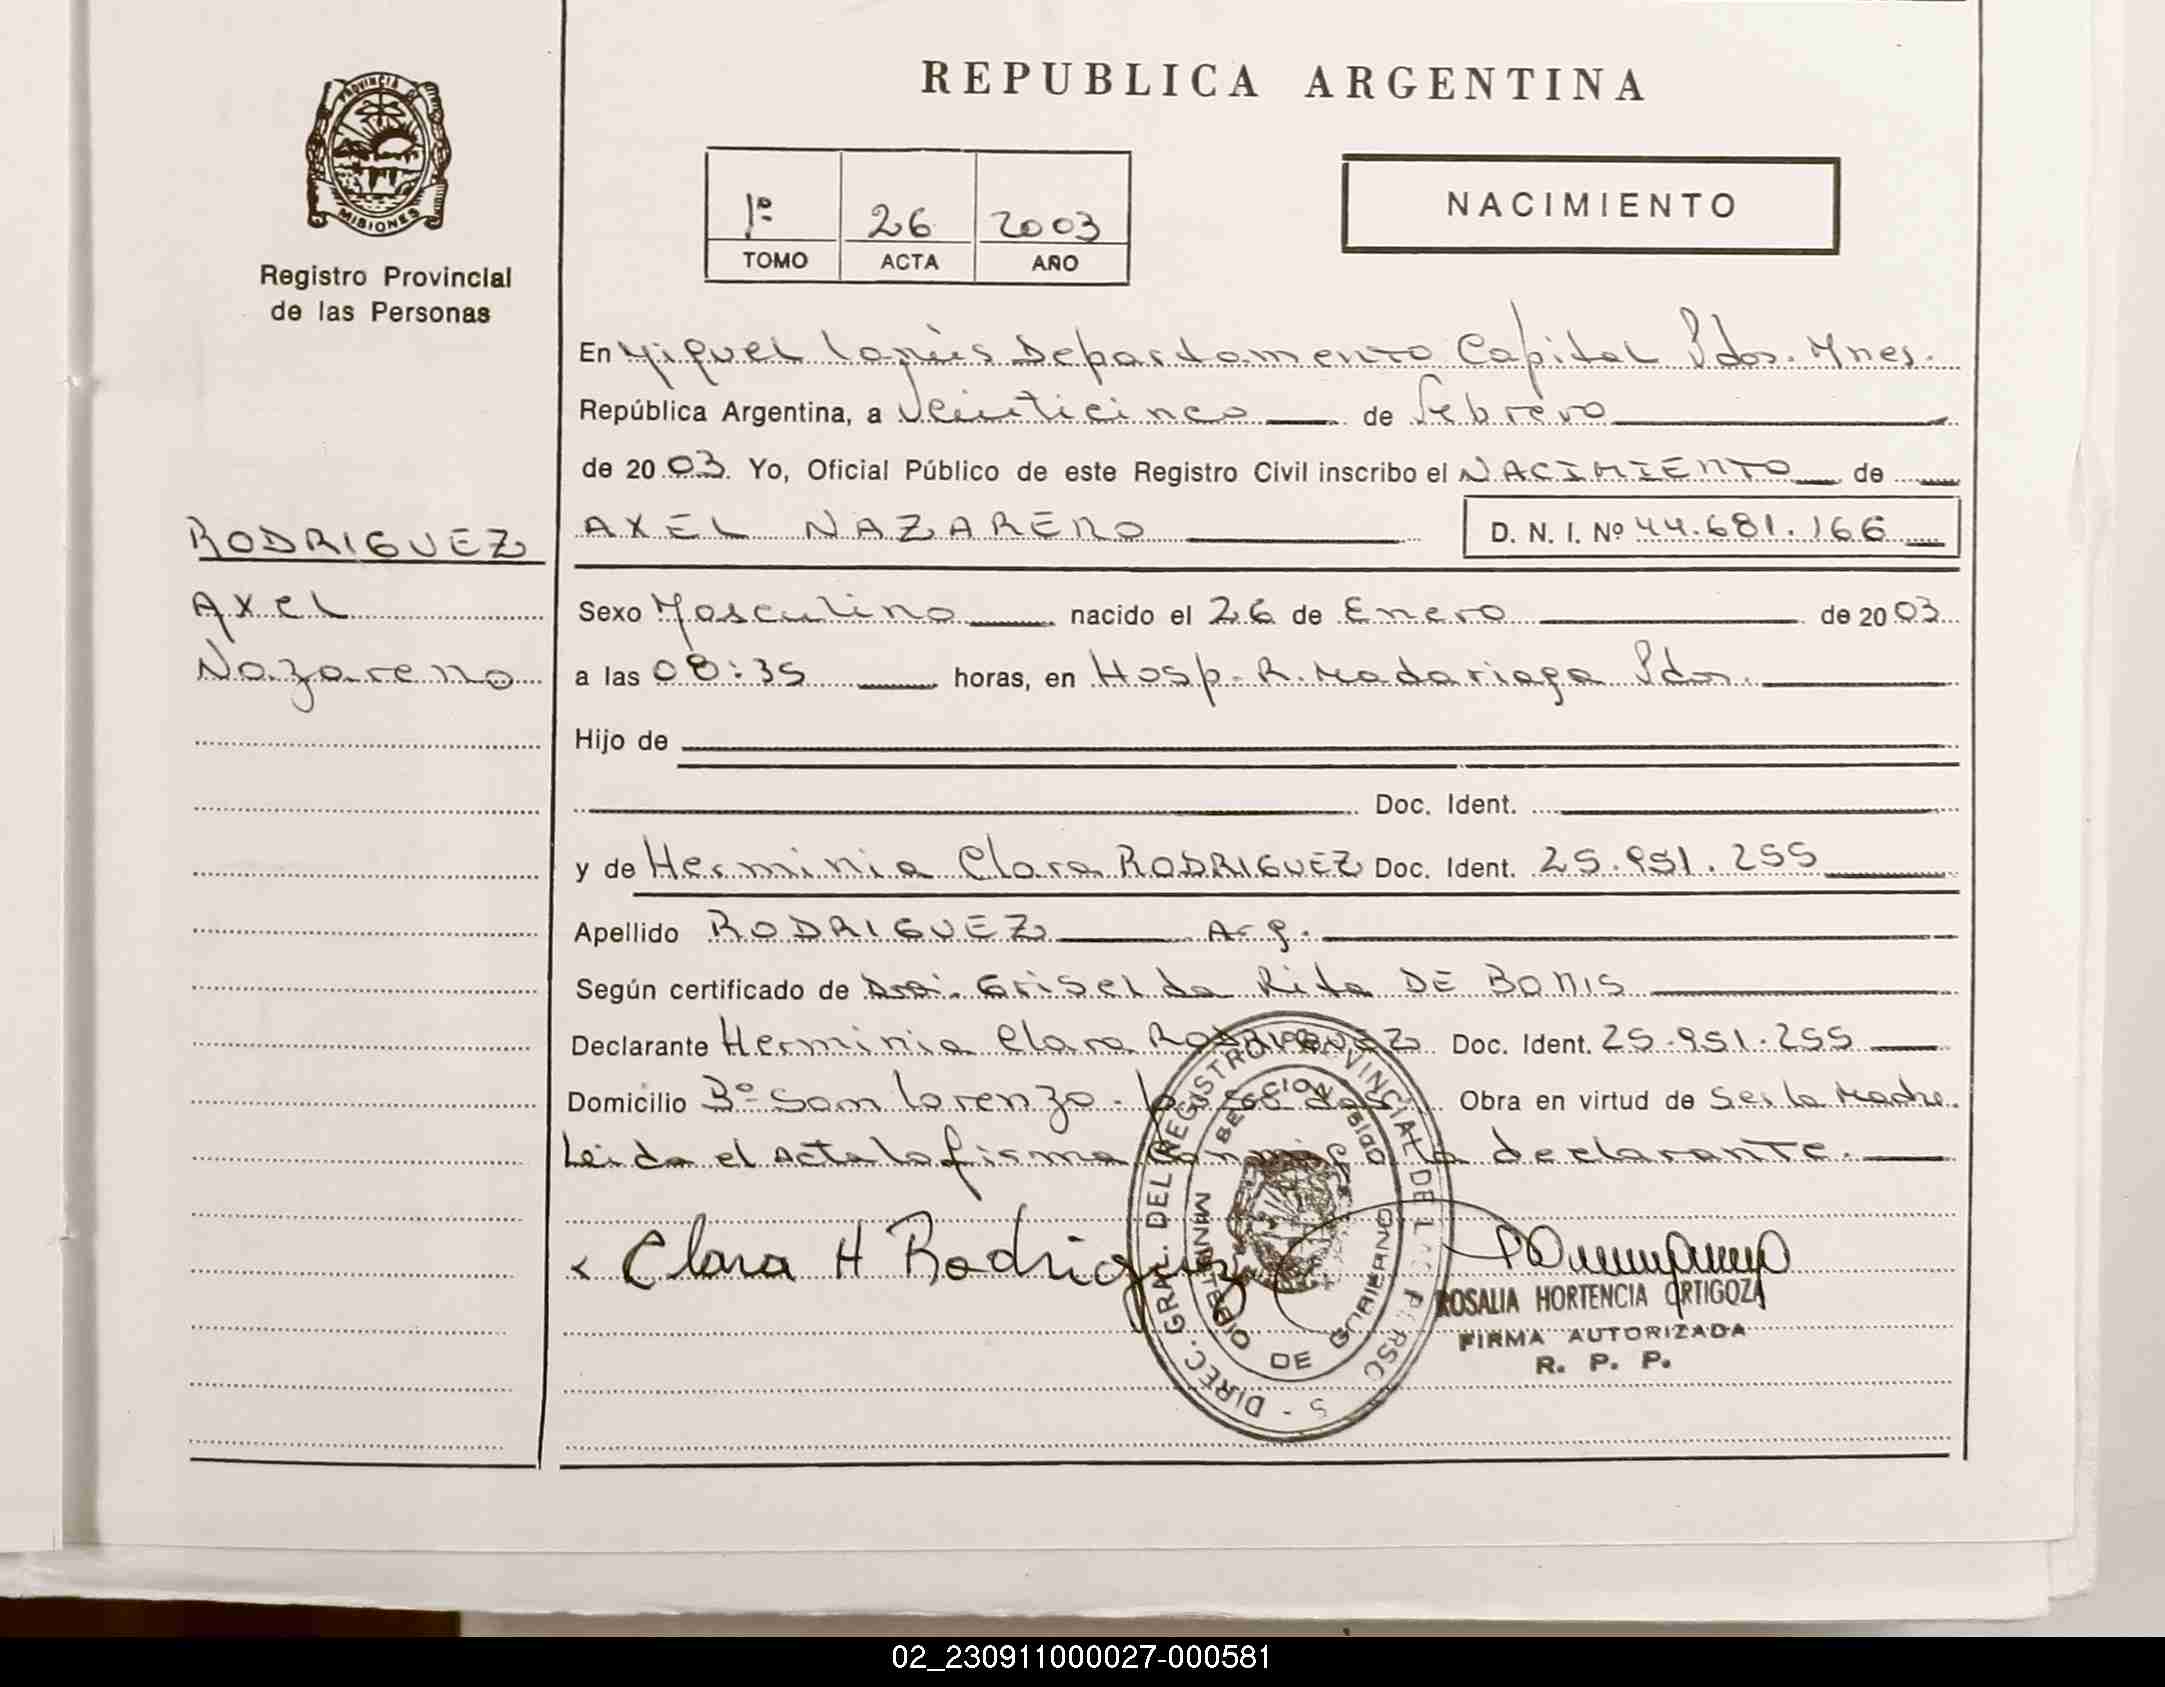 REPUBLICA ARGENTINA
PROVINCIA DE
MISIONES
Registro Provincial
de las Personas
1º 26 2003
TOMO ACTA AÑO
NACIMIENTO
En Miguel Lanús Departamento Capital Pdas. Mnes.
República Argentina, a Veinticinco de Febrero
de 2003. Yo, Oficial Público de este Registro Civil inscribo el NACIMIENTO de
RODRIGUEZ
Axel
Nazareno
AXEL NAZARENO D. N. I. Nº 44.681.166
Sexo Masculino nacido el 26 de Enero de 2003
a las 08:35 horas, en Hosp. R. Madariaga Pdas.
Hijo de
Doc. Ident.
y de Herminia Clara RODRIGUEZ Doc. Ident. 25.951.255
Apellido RODRIGUEZ Arg.
Según certificado de Dra. Griselda Rita DE BONIS
Declarante Herminia Clara RODRIGUEZ Doc. Ident. 25.951.255
Domicilio Bº San Lorenzo - Posadas Obra en virtud de Ser la Madre.
Leida el Acta la firma conmigo la declarante.
Clara H Rodriguez
DIREC. GRAL. DEL REGISTRO PROVINCIAL DE LAS PERSONAS
MINISTERIO DE GOBIERNO
ROSALIA HORTENCIA ORTIGOZA
FIRMA AUTORIZADA
R. P. P.
02_230911000027-000581